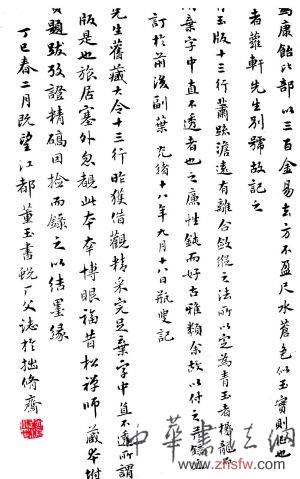 康飴比部以三百金易去方不盈尺水蒼色似玉實則也
者蘿軒先生別號故記之
玉版十三行蕭疏澹遠有離合斂縱之法所以定為青玉者楊龍
棄字中直不透者也之廉性鈍而好古雅類余故以付之
訂於前後副葉 光緒十八年九月十八日瓶叟記
先生舊藏大令十三行昨獲借觀精采完足棄字中直不透所謂
版是也旅居塞外忽覩此本奉博眼福昔松禪師藏本坿
題跋攷證精礭因撿而錄之以結墨緣
丁巳春二月既望江都董玉書蛻厂父誌於拙脩齋
中華書法網
www.zhsfw.com